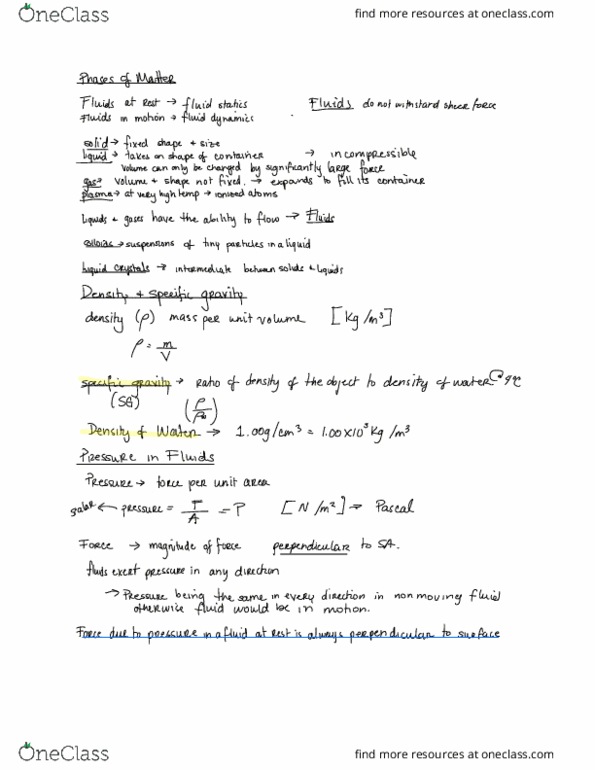 OneClass
find more resources at oneclass.com
Phases of Matter
Fluids at rest → fluid statics
Fluids do not withstand sheer force
Fluids in motion → fluid dynamics
solid → fixed shape + size
liquid → takes on shape of container → incompressible
volume can only be changed by significantly large force
gas → volume + shape not fixed. → expands to fill its container
plasma → at very high temp → ionised atoms
liquids + gases have the ability to flow → Fluids
→ suspensions of tiny particles in a liquid
liquid crystals → intermediate between solids + liquids
Density + specific gravity
density (ρ) mass per unit volume [kg/m³]
ρ = m/V
specific gravity → ratio of density of the object to density of water @ 4°C
(SG) (ρ/ρ)
Density of Water → 1.00g/cm³ = 1.00x10³ kg/m³
Pressure in Fluids
Pressure → force per unit area
scalar ← pressure = F/A = P [N/m²] → Pascal
Force → magnitude of force perpendicular to SA.
fluids exert pressure in any direction
→ Pressure being the same in every direction in nonmoving fluid
otherwise fluid would be in motion.
Force due to pressure in a fluid at rest is always perpendicular to surface
OneClass
find more resources at oneclass.com